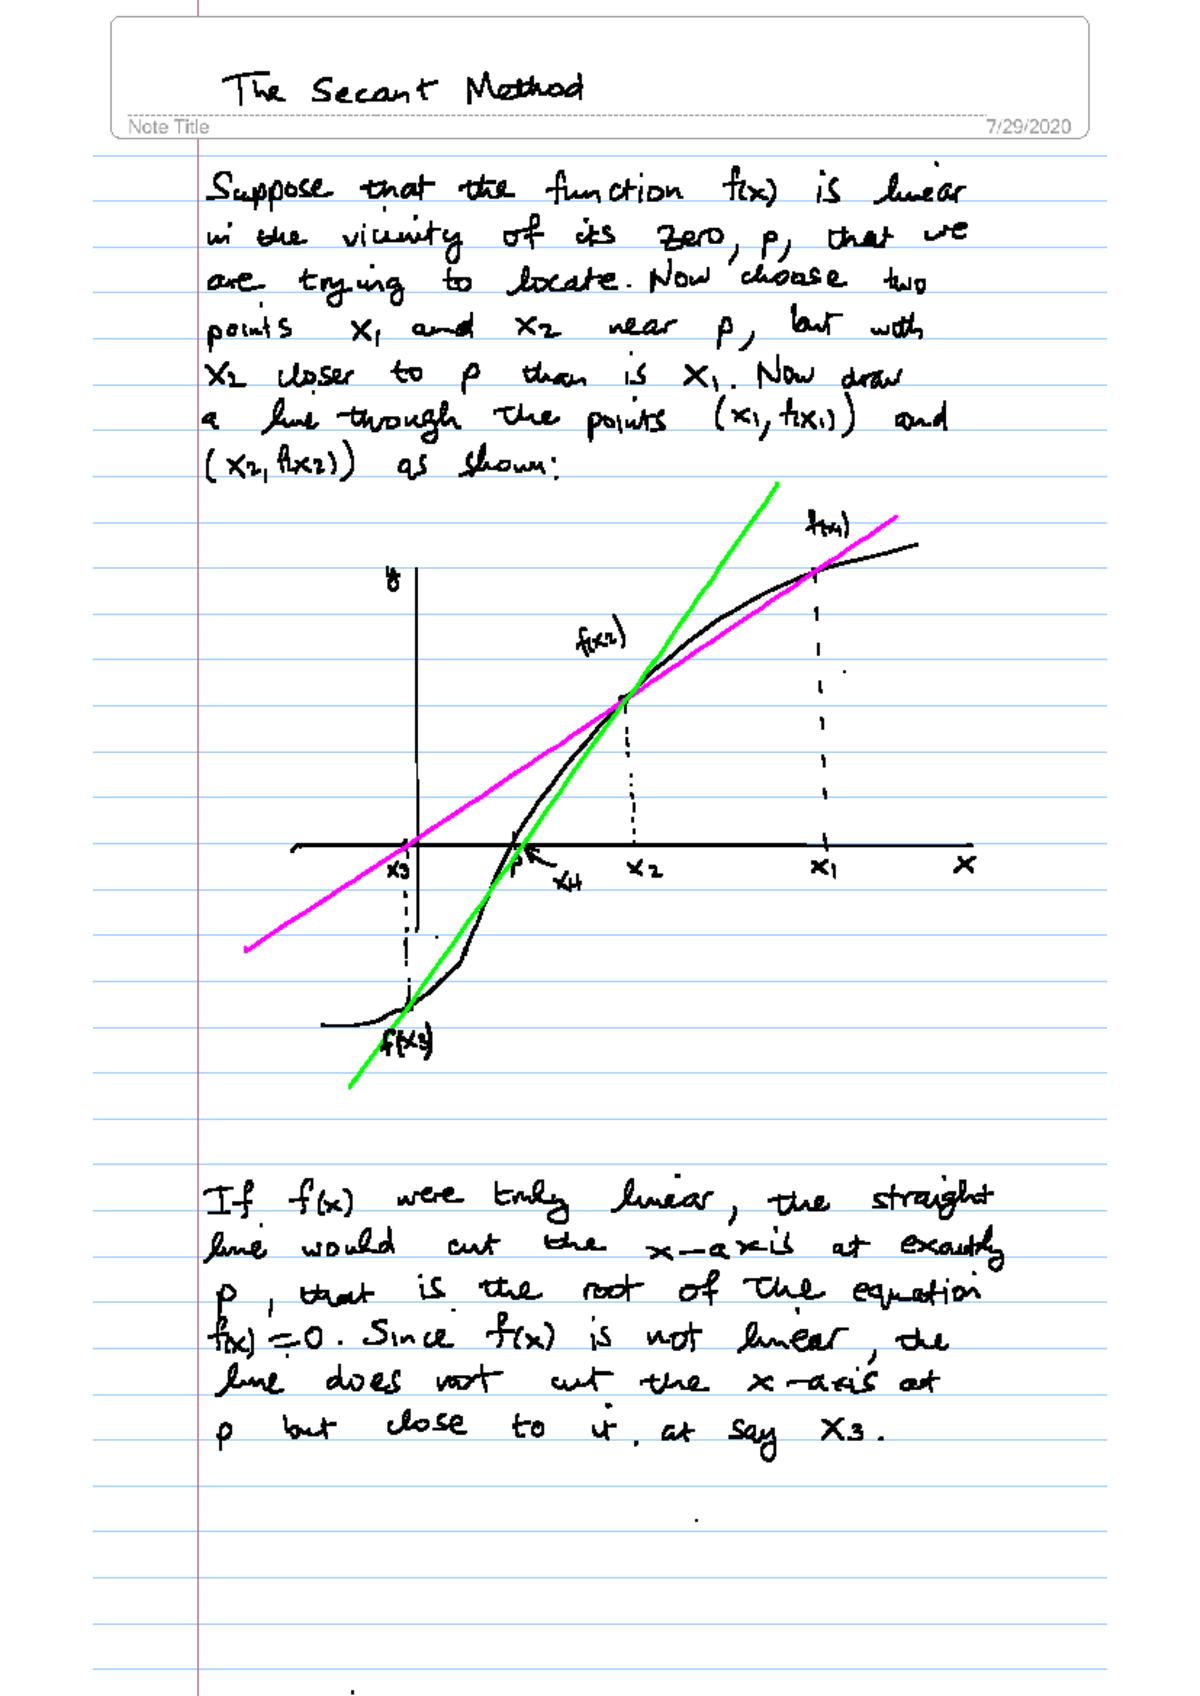 The Secant Method
Note Title
7/29/2020
Suppose that the function f(x) is linear
in the vicinity of its zero, p, that we
are trying to locate. Now choose two
points x1 and x2 near p, but with
x2 closer to p than is x1. Now draw
a line through the points (x1, f(x1)) and
(x2, f(x2)) as shown:
f(x1)
y
f(x2)
x3
p
x4
x2
x1
x
f(x3)
If f(x) were truly linear, the straight
line would cut the x-axis at exactly
p, that is the root of the equation
f(x)=0. Since f(x) is not linear, the
line does not cut the x-axis at
p but close to it, at say x3.